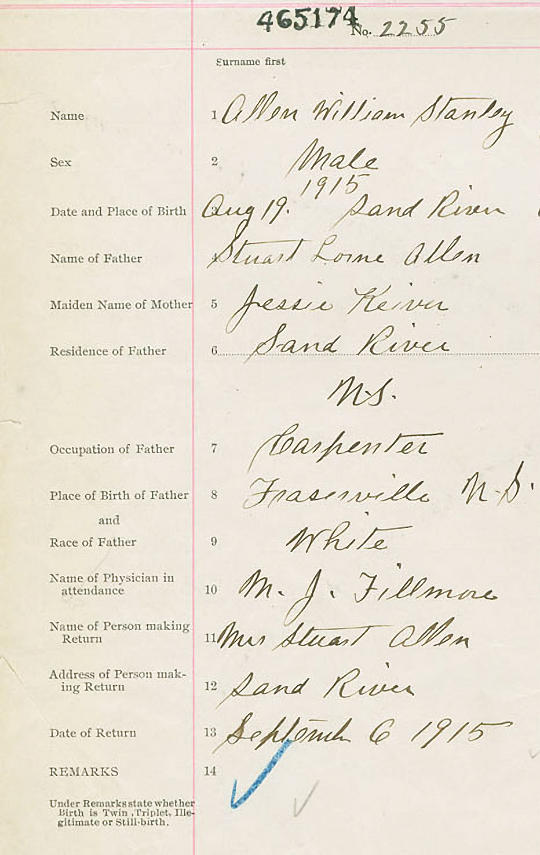 465174
No. 2255
Surname first
Name 1 Allen William Stanley
Sex 2 Male
1915
Date and Place of Birth 3 Aug 19. Sand River
Name of Father Stuart Lorne Allen
Maiden Name of Mother 5 Jessie Keiver
Residence of Father 6 Sand River
N.S.
Occupation of Father 7 Carpenter
Place of Birth of Father 8 Fraserville N.S.
and
Race of Father 9 White
Name of Physician in
attendance 10 M. J. Fillmore
Name of Person making
Return 11 Mrs Stuart Allen
Address of Person mak-
ing Return 12 Sand River
Date of Return 13 September 6 1915
REMARKS 14
Under Remarks state whether
Birth is Twin, Triplet, Ille-
gitimate or Still-birth.